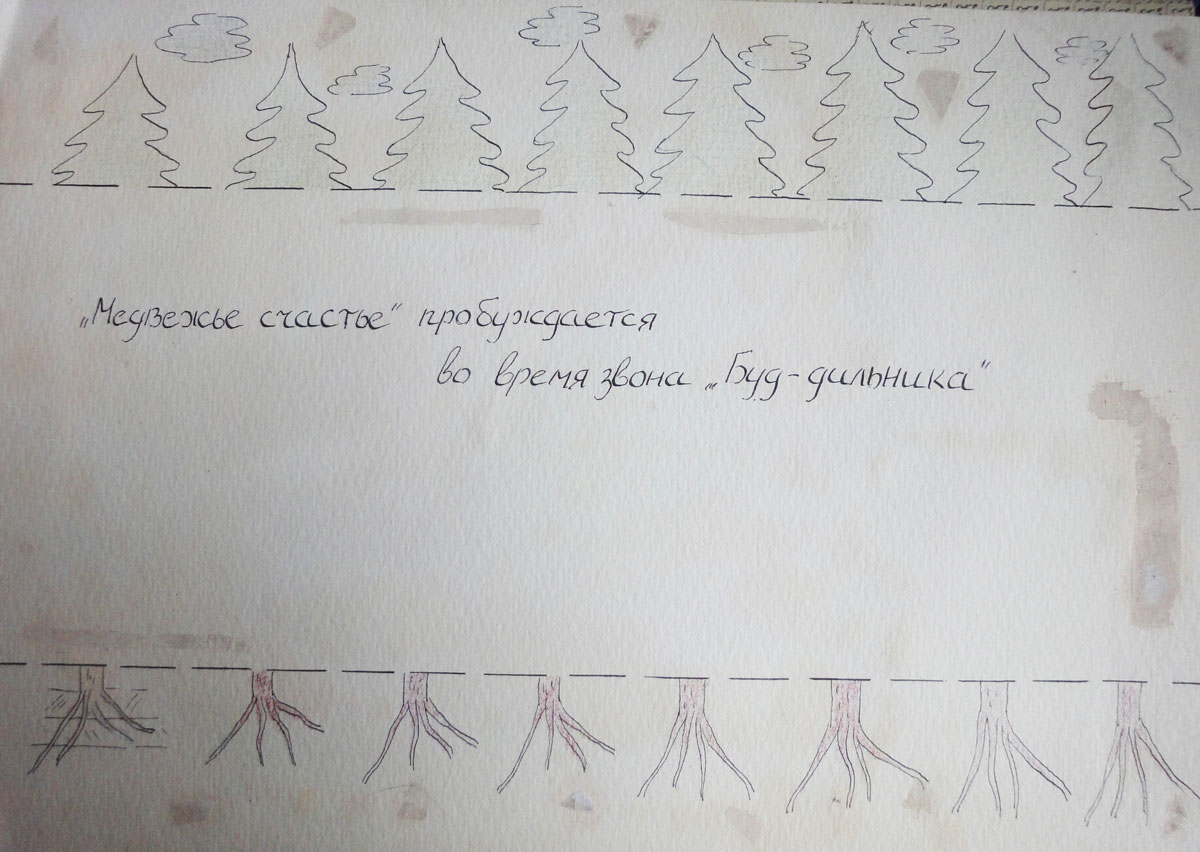 „Медвежье счастье“ пробуждается
во время звона „Буд-дильника“